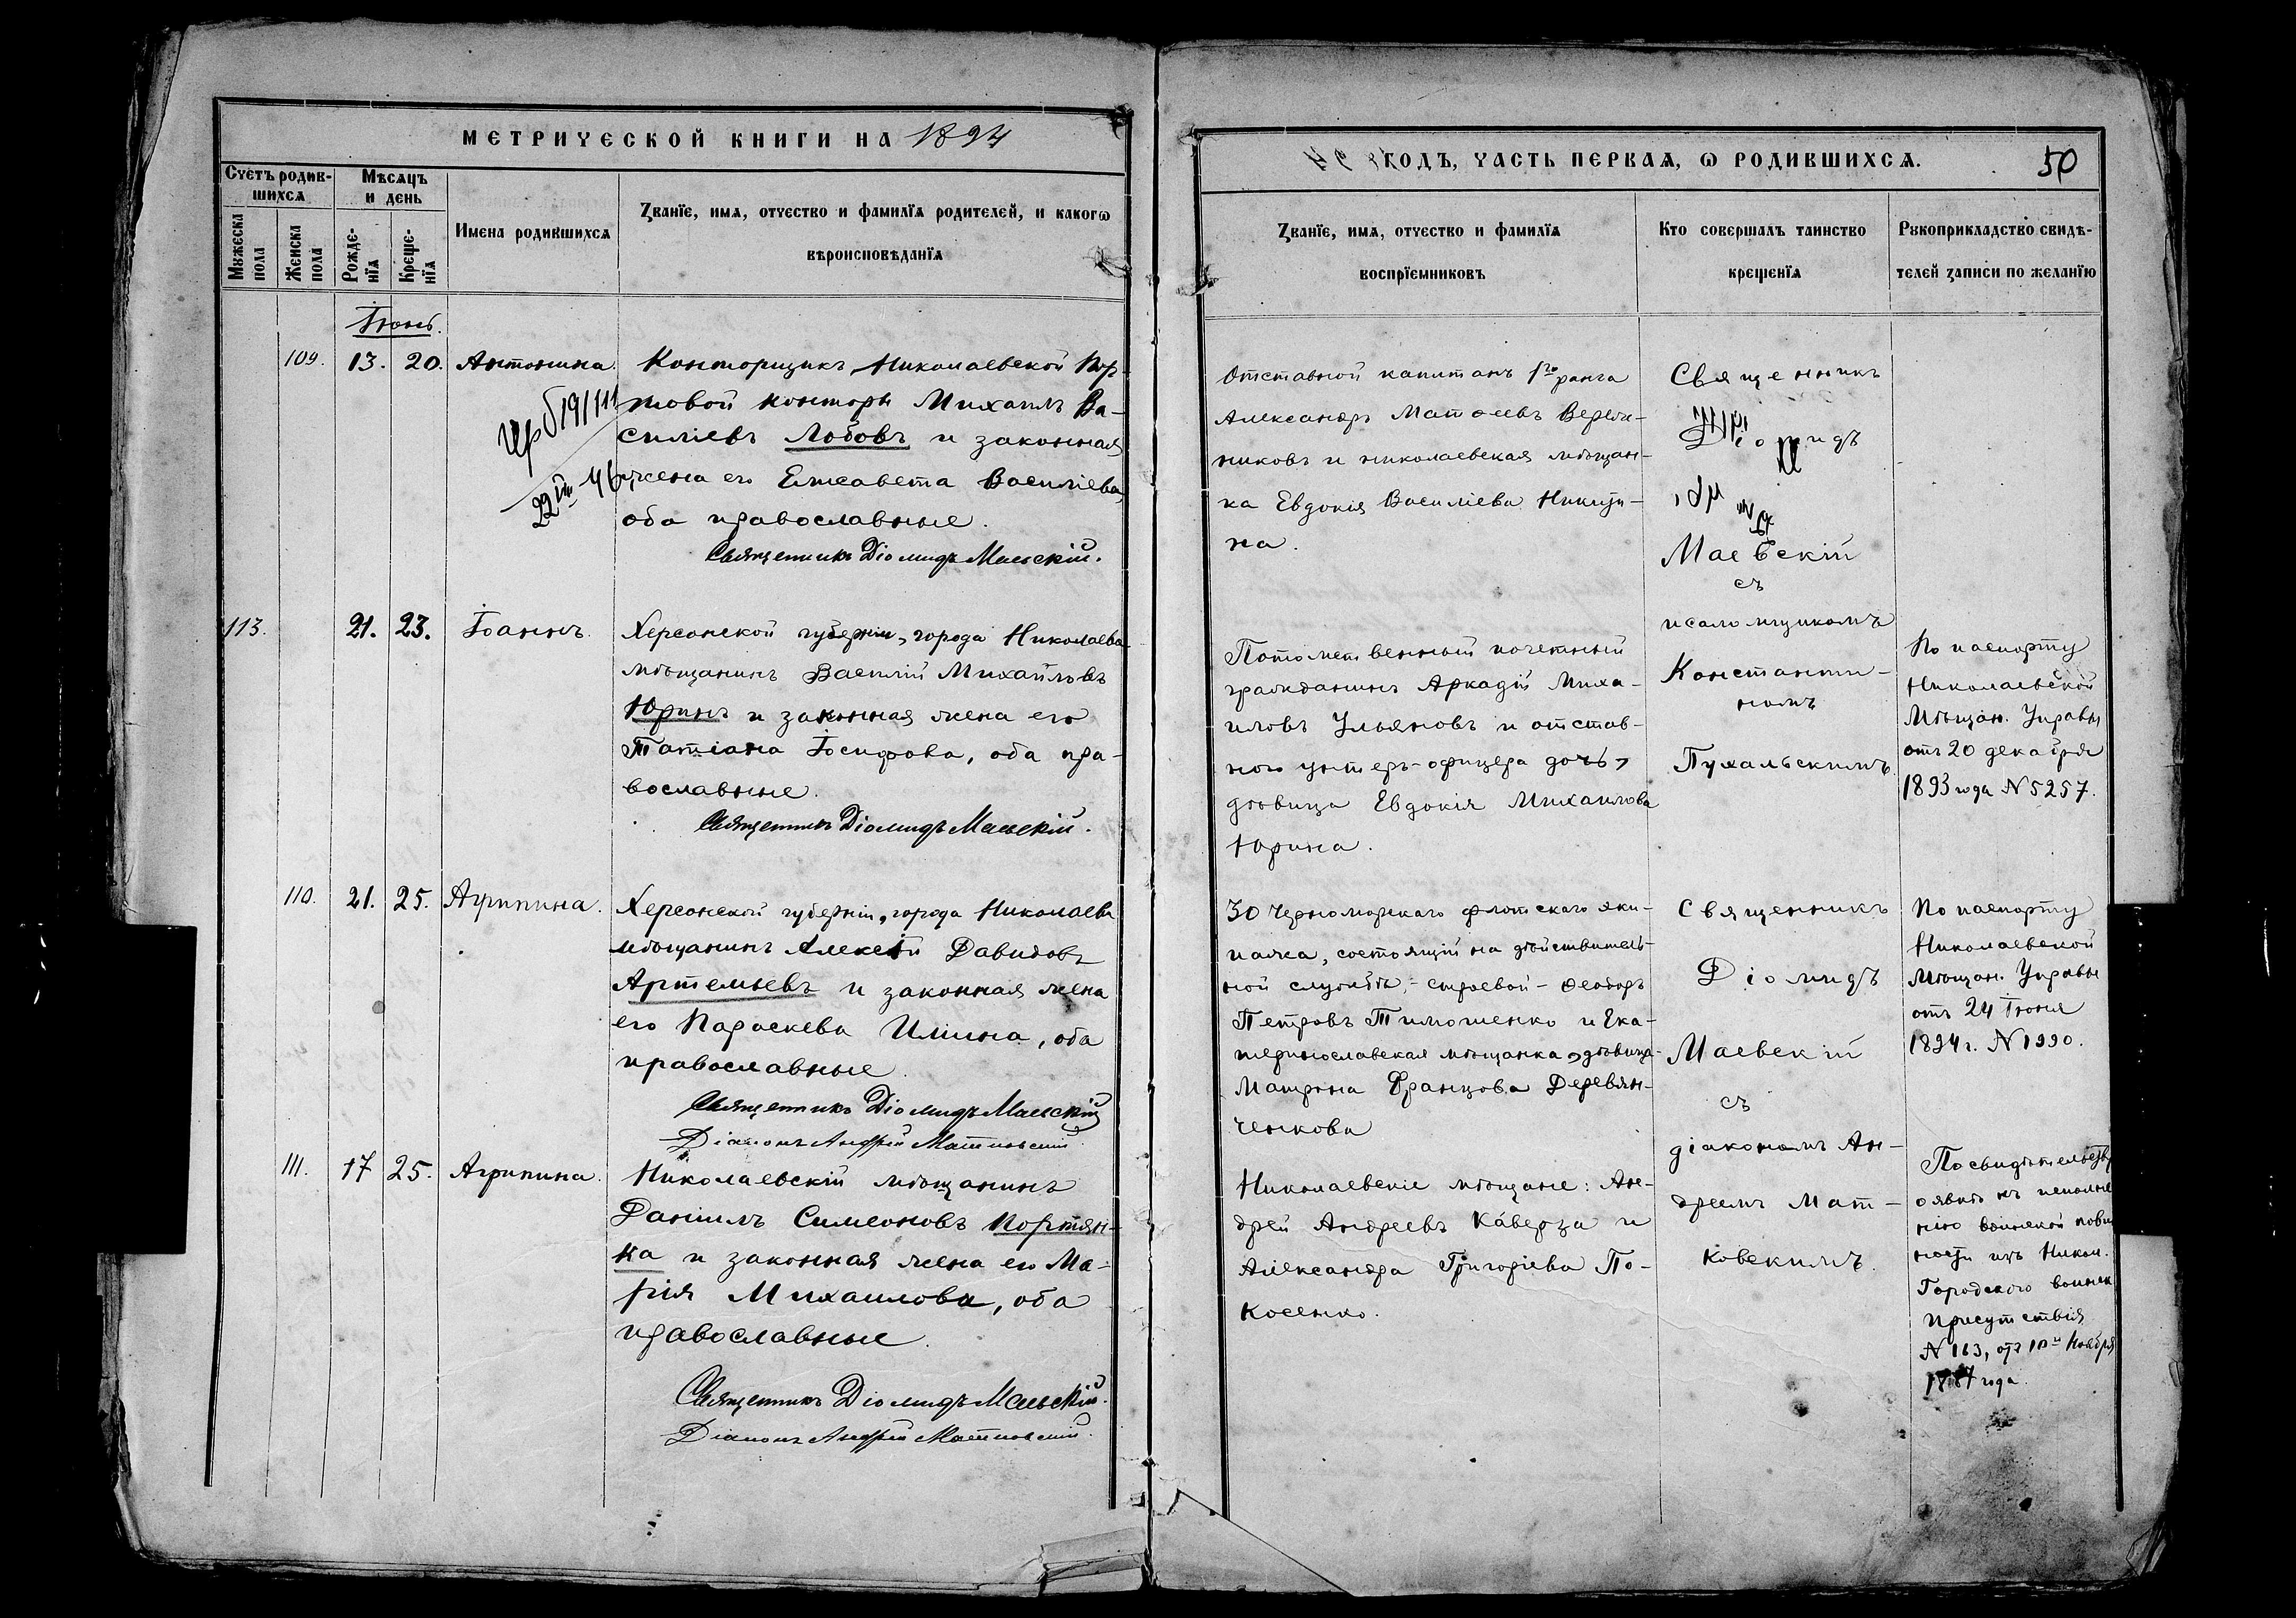 МЕТРИЧЕСКОЙ КНИГИ НА 1894
Счетъ родив-
шихся
Мѣсяцъ
и день
Мужеска
пола
Женска
пола
Рожде-
нїя
Креще-
нїя
Имена родившихся
Званїе, имя, отчество и фамилїя родителей, и какогѡ
вѣроисповѣданїя
Іюнь.
109. 13. 20. Антонина
Конторщикъ Николаевской Пор-
товой конторы Михаилъ Ва-
силіевъ Лобовъ и законная
жена его Елисавета Василіева,
оба православные.
Священникъ Діомидъ Маевскій.
113. 21. 23. Іоаннъ.
Херсонской губерніи, города Николаева
мѣщанинъ Василій Михайловъ
Юринъ и законная жена его
Татіана Іосифова, оба пра-
вославные.
Священникъ Діомидъ Маевскій.
110. 21. 25. Агрипина.
Херсонской губерніи, города Николаева
мѣщанинъ Алексѣй Давидовъ
Артемьевъ и законная жена
его Параскева Илiина, оба
православные.
Священникъ Діомидъ Маевскій
Діаконъ Андрей Матковскій.
111. 17 25. Агрипина.
Николаевскій мѣщанинъ
Даніилъ Симеоновъ Портян-
ка и законная жена его Ма-
рія Михаилова, оба
православные.
Священникъ Діомидъ Маевскій.
Діаконъ Андрей Матковскій.
ГОДЪ, ЧАСТЬ ПЕРВАЯ, Ѡ РОДИВШИХСЯ.
50
Званїе, имя, отчество и фамилїя
воспрїемниковъ
Кто совершалъ таинство
крещенїя
Рукоприкладство свидѣ-
телей записи по желанїю
Отставной капитанъ 1го ранга
Александръ Матѳеевъ Верем-
никовъ и николаевская мѣщан-
ка Евдокія Василіева Никити-
на.
Священникъ
Діомидъ
Маевскій
съ
псаломщикомъ
Константи-
номъ
Пухальскимъ
Потомственный почетный
гражданинъ Аркадій Миха-
иловъ Ульяновъ и отстав-
ного унтеръ-офицера дочь,
дѣвица Евдокія Михаилова
Юрина.
По паспорту
Николаевской
Мѣщан. Управы
отъ 20 декабря
1893 года N 5257.
30 Черноморскаго флотскаго эки-
пажа, состоящій на дѣйствитель-
ной службѣ, - строевой - Ѳеодоръ
Петровъ Тимошенко и Ека-
теринославская мѣщанка, дѣвица
Матрона Францова Деревян-
ченкова
Священникъ
Діомидъ
Маевскій
съ
діакономъ Ан-
дреемъ Мат-
ковскимъ.
По паспорту
Николаевской
Мѣщан. Управы
отъ 24 Іюня
1894 г. N 1990.
Николаевскіе мѣщане: Ан-
дрей Андреевъ Кáверза и
Александра Григоріева По-
косенко.
По свидѣтельству
о явкѣ къ исполне
нію воинской пови
ности изъ Никол.
Городского воинск
присутствія
N 163, отъ 10го Ноября
1887 года.